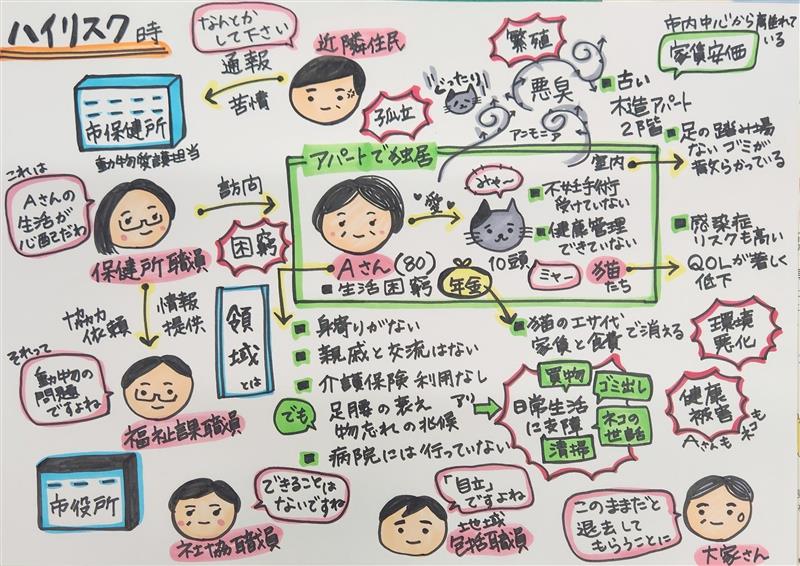 ハイリスク時
なんとか
して下さい
近隣住民
通報
苦情
市保健所
動物愛護担当
孤立
ぐったり
繁殖
悪臭
アンモニア
市内中心から離れて
いる
家賃安価
古い
木造アパート
2階
室内
足の踏み場
ない ゴミが
散らかっている
これは
Aさんの
生活が
心配だわ
保健所職員
訪問
困窮
アパートで独居
愛
Aさん(80)
生活困窮
年金
みゃー
10頭
ミャー
猫
たち
不妊手術
受けていない
健康管理
できていない
感染症
リスクも高い
QOLが著しく
低下
協力
依頼
情報
提供
それって
動物の
問題
ですよね
福祉課職員
領域とは
身寄りがない
親戚と交流はない
介護保険利用なし
でも
足腰の衰え アリ
物忘れの兆候
病院には行っていない
猫のエサ代
家賃と食費
で消える
買物
ゴミ出し
日常生活
に支障
ネコの
世話
清掃
環境
悪化
健康
被害
Aさんも
ネコも
市役所
できることは
ないですね
社協職員
「自立」
ですよね
地域
包括職員
このままだと
退去して
もらうことに
大家さん